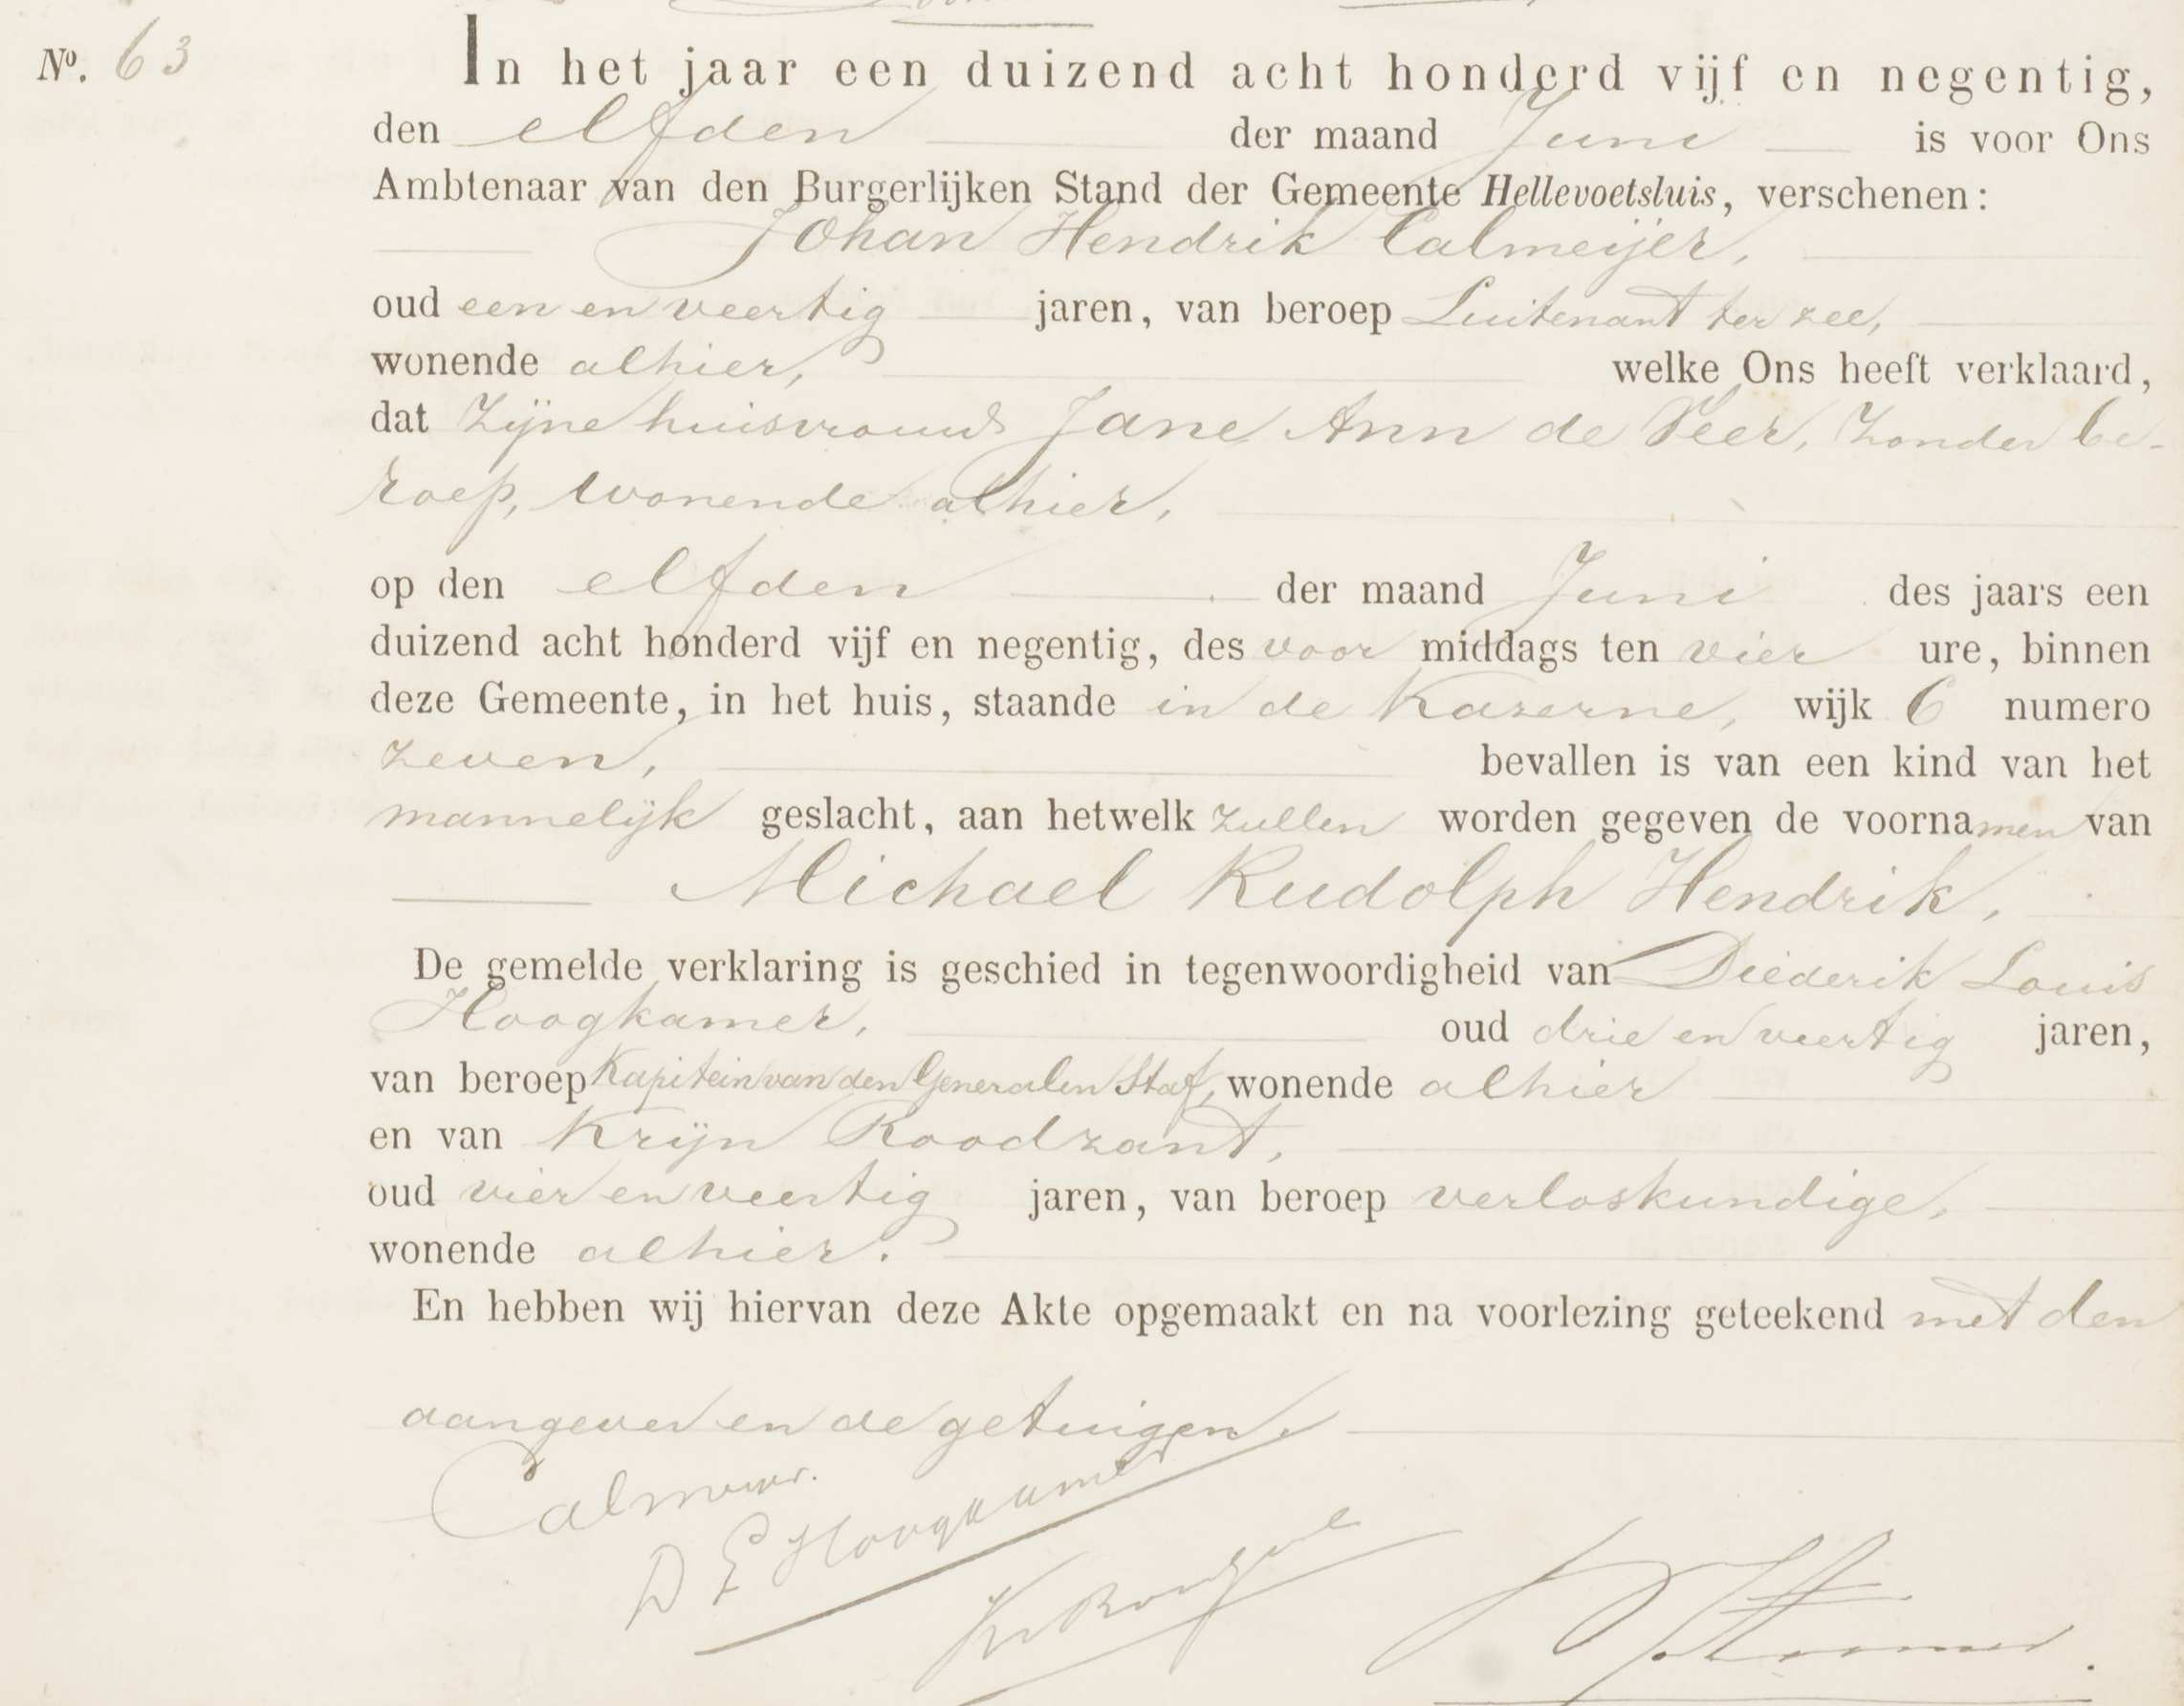 Nº. 63
In het jaar een duizend acht honderd vijf en negentig,
den elfden der maand Juni is voor Ons
Ambtenaar van den Burgerlijken Stand der Gemeente Hellevoetsluis, verschenen:
Johan Hendrik Calmeijer,
oud een en veertig jaren, van beroep Luitenant ter zee,
wonende alhier, welke Ons heeft verklaard,
dat zijne huisvrouw Jane Ann de Veer, zonder be-
roep, wonende alhier,
op den elfden der maand Juni des jaars een
duizend acht honderd vijf en negentig, des voor middags ten vier ure, binnen
deze Gemeente, in het huis, staande in de Kazerne, wijk 6 numero
zeven, bevallen is van een kind van het
mannelijk geslacht, aan hetwelk zullen worden gegeven de voornamen van
Michael Rudolph Hendrik,
De gemelde verklaring is geschied in tegenwoordigheid van Diederik Louis
Hoogkamer, oud drie en veertig jaren,
van beroep Kapitein van den Generalen Staf, wonende alhier
en van Krijn Roodzant,
oud vier en veertig jaren, van beroep verloskundige,
wonende alhier.
En hebben wij hiervan deze Akte opgemaakt en na voorlezing geteekend met den
aangever en de getuigen.
Calmeijer.
Hoogkamer